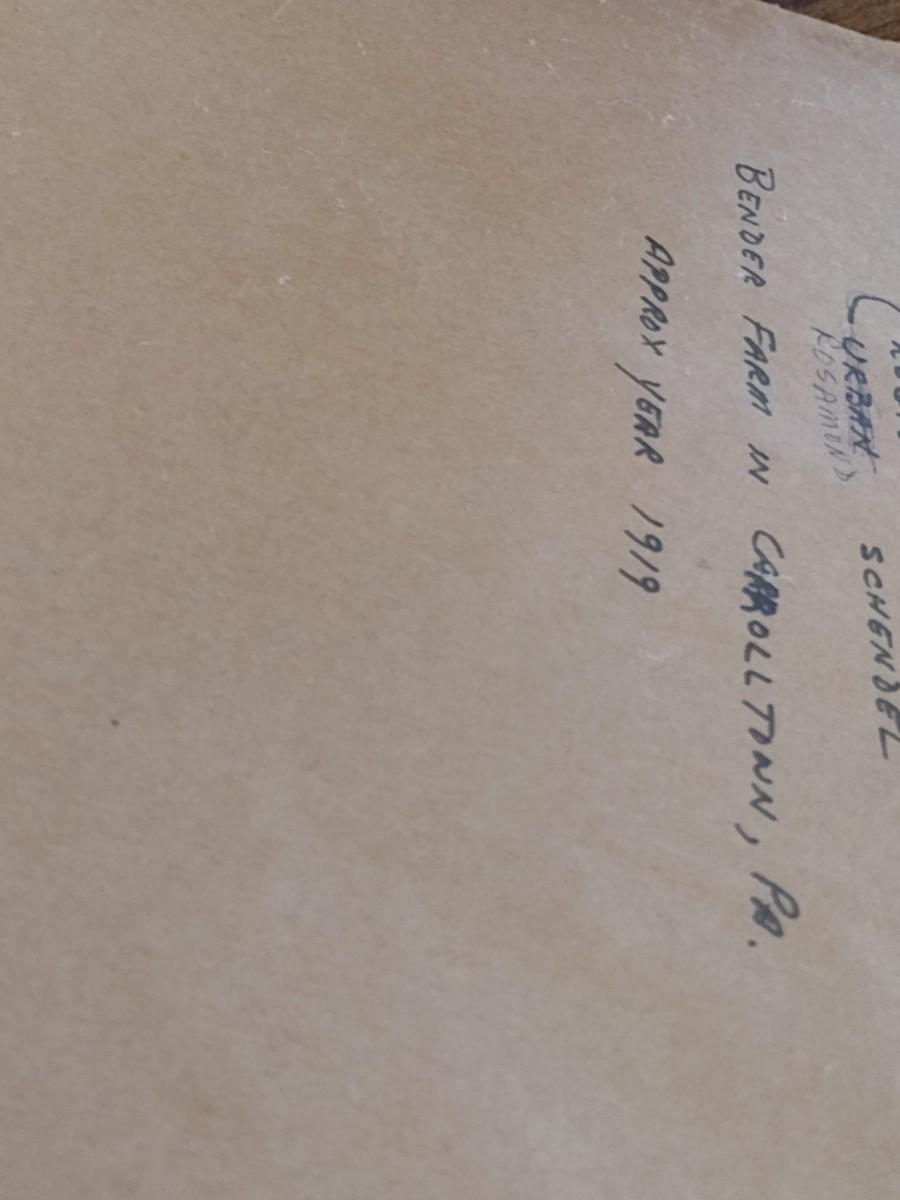 URBAN SCHENDEL
ROSAMOND
BENDER FARM IN CARROLLTOWN, PA.
APPROX YEAR 1919